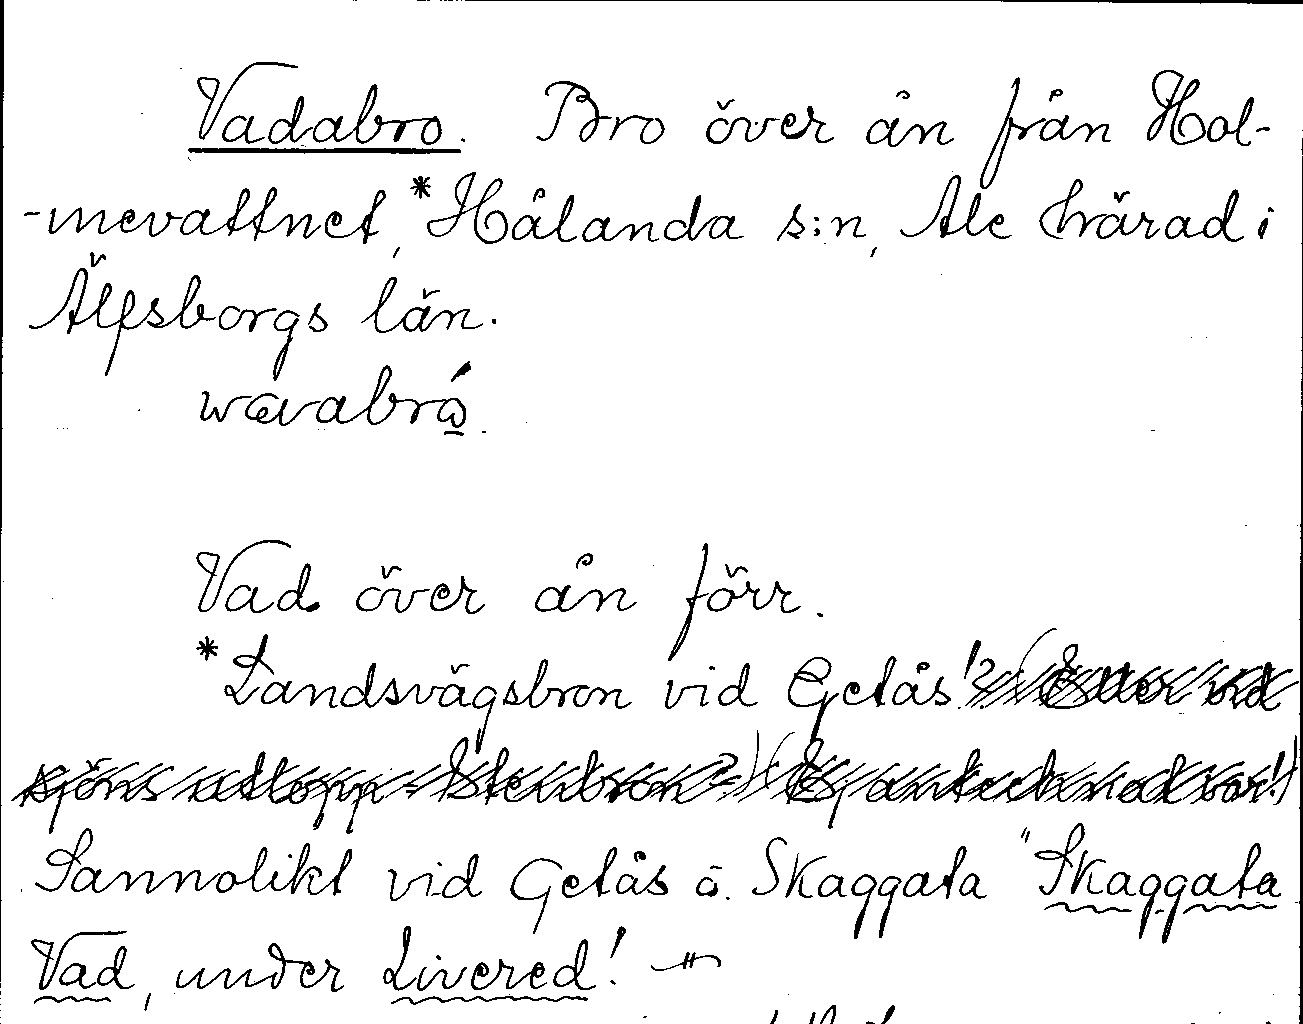 Vadabro. Bro över ån från Hol-
-mevattnet,* Hålanda s:n, Ale härad i
Älfsborgs län.
Vad över ån förr.
*Landsvägsbron vid Getås! ? (Eller vid
sjöns utlopp = Stenbron?) (Ej antecknad var!)
Sannolikt vid Getås ö. Skaggata "Skaggata
Vad, under Livered! –"–